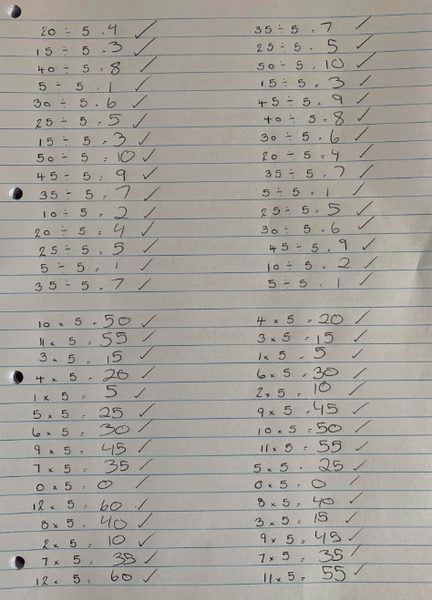 20 ÷ 5 = 4 ✓
15 ÷ 5 = 3 ✓
40 ÷ 5 = 8 ✓
5 ÷ 5 = 1 ✓
30 ÷ 5 = 6 ✓
25 ÷ 5 = 5 ✓
15 ÷ 5 = 3 ✓
50 ÷ 5 = 10 ✓
45 ÷ 5 = 9 ✓
35 ÷ 5 = 7 ✓
10 ÷ 5 = 2 ✓
20 ÷ 5 = 4 ✓
25 ÷ 5 = 5 ✓
5 ÷ 5 = 1 ✓
35 ÷ 5 = 7 ✓
35 ÷ 5 = 7 ✓
25 ÷ 5 = 5 ✓
50 ÷ 5 = 10 ✓
15 ÷ 5 = 3 ✓
45 ÷ 5 = 9 ✓
40 ÷ 5 = 8 ✓
30 ÷ 5 = 6 ✓
20 ÷ 5 = 4 ✓
35 ÷ 5 = 7 ✓
5 ÷ 5 = 1 ✓
25 ÷ 5 = 5 ✓
30 ÷ 5 = 6 ✓
45 ÷ 5 = 9 ✓
10 ÷ 5 = 2 ✓
5 ÷ 5 = 1 ✓
10 × 5 = 50 ✓
11 × 5 = 55 ✓
3 × 5 = 15 ✓
4 × 5 = 20 ✓
1 × 5 = 5 ✓
5 × 5 = 25 ✓
6 × 5 = 30 ✓
9 × 5 = 45 ✓
7 × 5 = 35 ✓
0 × 5 = 0 ✓
12 × 5 = 60 ✓
8 × 5 = 40 ✓
2 × 5 = 10 ✓
7 × 5 = 35 ✓
12 × 5 = 60 ✓
4 × 5 = 20 ✓
3 × 5 = 15 ✓
1 × 5 = 5 ✓
6 × 5 = 30 ✓
2 × 5 = 10 ✓
9 × 5 = 45 ✓
10 × 5 = 50 ✓
11 × 5 = 55 ✓
5 × 5 = 25 ✓
0 × 5 = 0 ✓
8 × 5 = 40 ✓
3 × 5 = 15 ✓
9 × 5 = 45 ✓
7 × 5 = 35 ✓
11 × 5 = 55 ✓